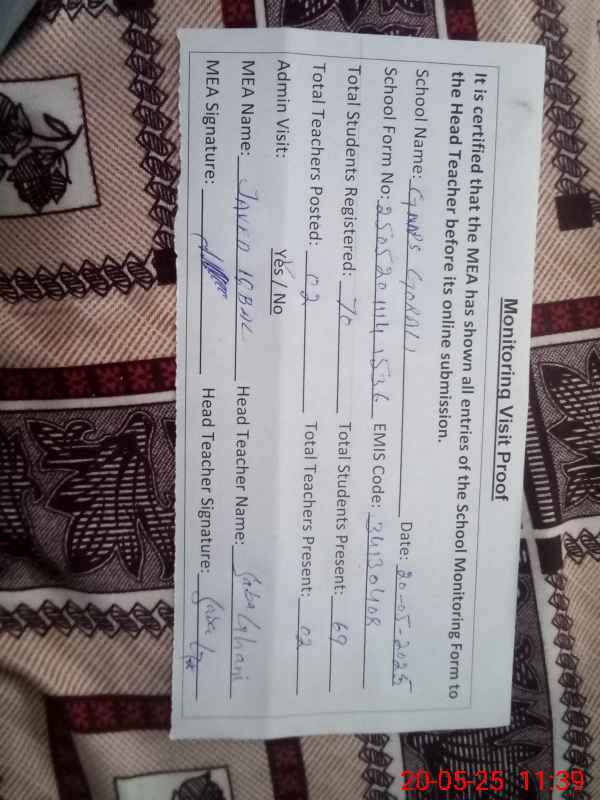 Monitoring Visit Proof
It is certified that the MEA has shown all entries of the School Monitoring Form to
the Head Teacher before its online submission.
School Name: Date: 20-05-2025
School Form No: 250520111141536 EMIS Code: 34130408
Total Students Registered: 70 Total Students Present: 69
Total Teachers Posted: 02 Total Teachers Present: 02
Admin Visit: Yes / No
MEA Name: JAVED IQBAL Head Teacher Name: Saba Ghani
MEA Signature: Head Teacher Signature: Saba
20-05-25 11:39